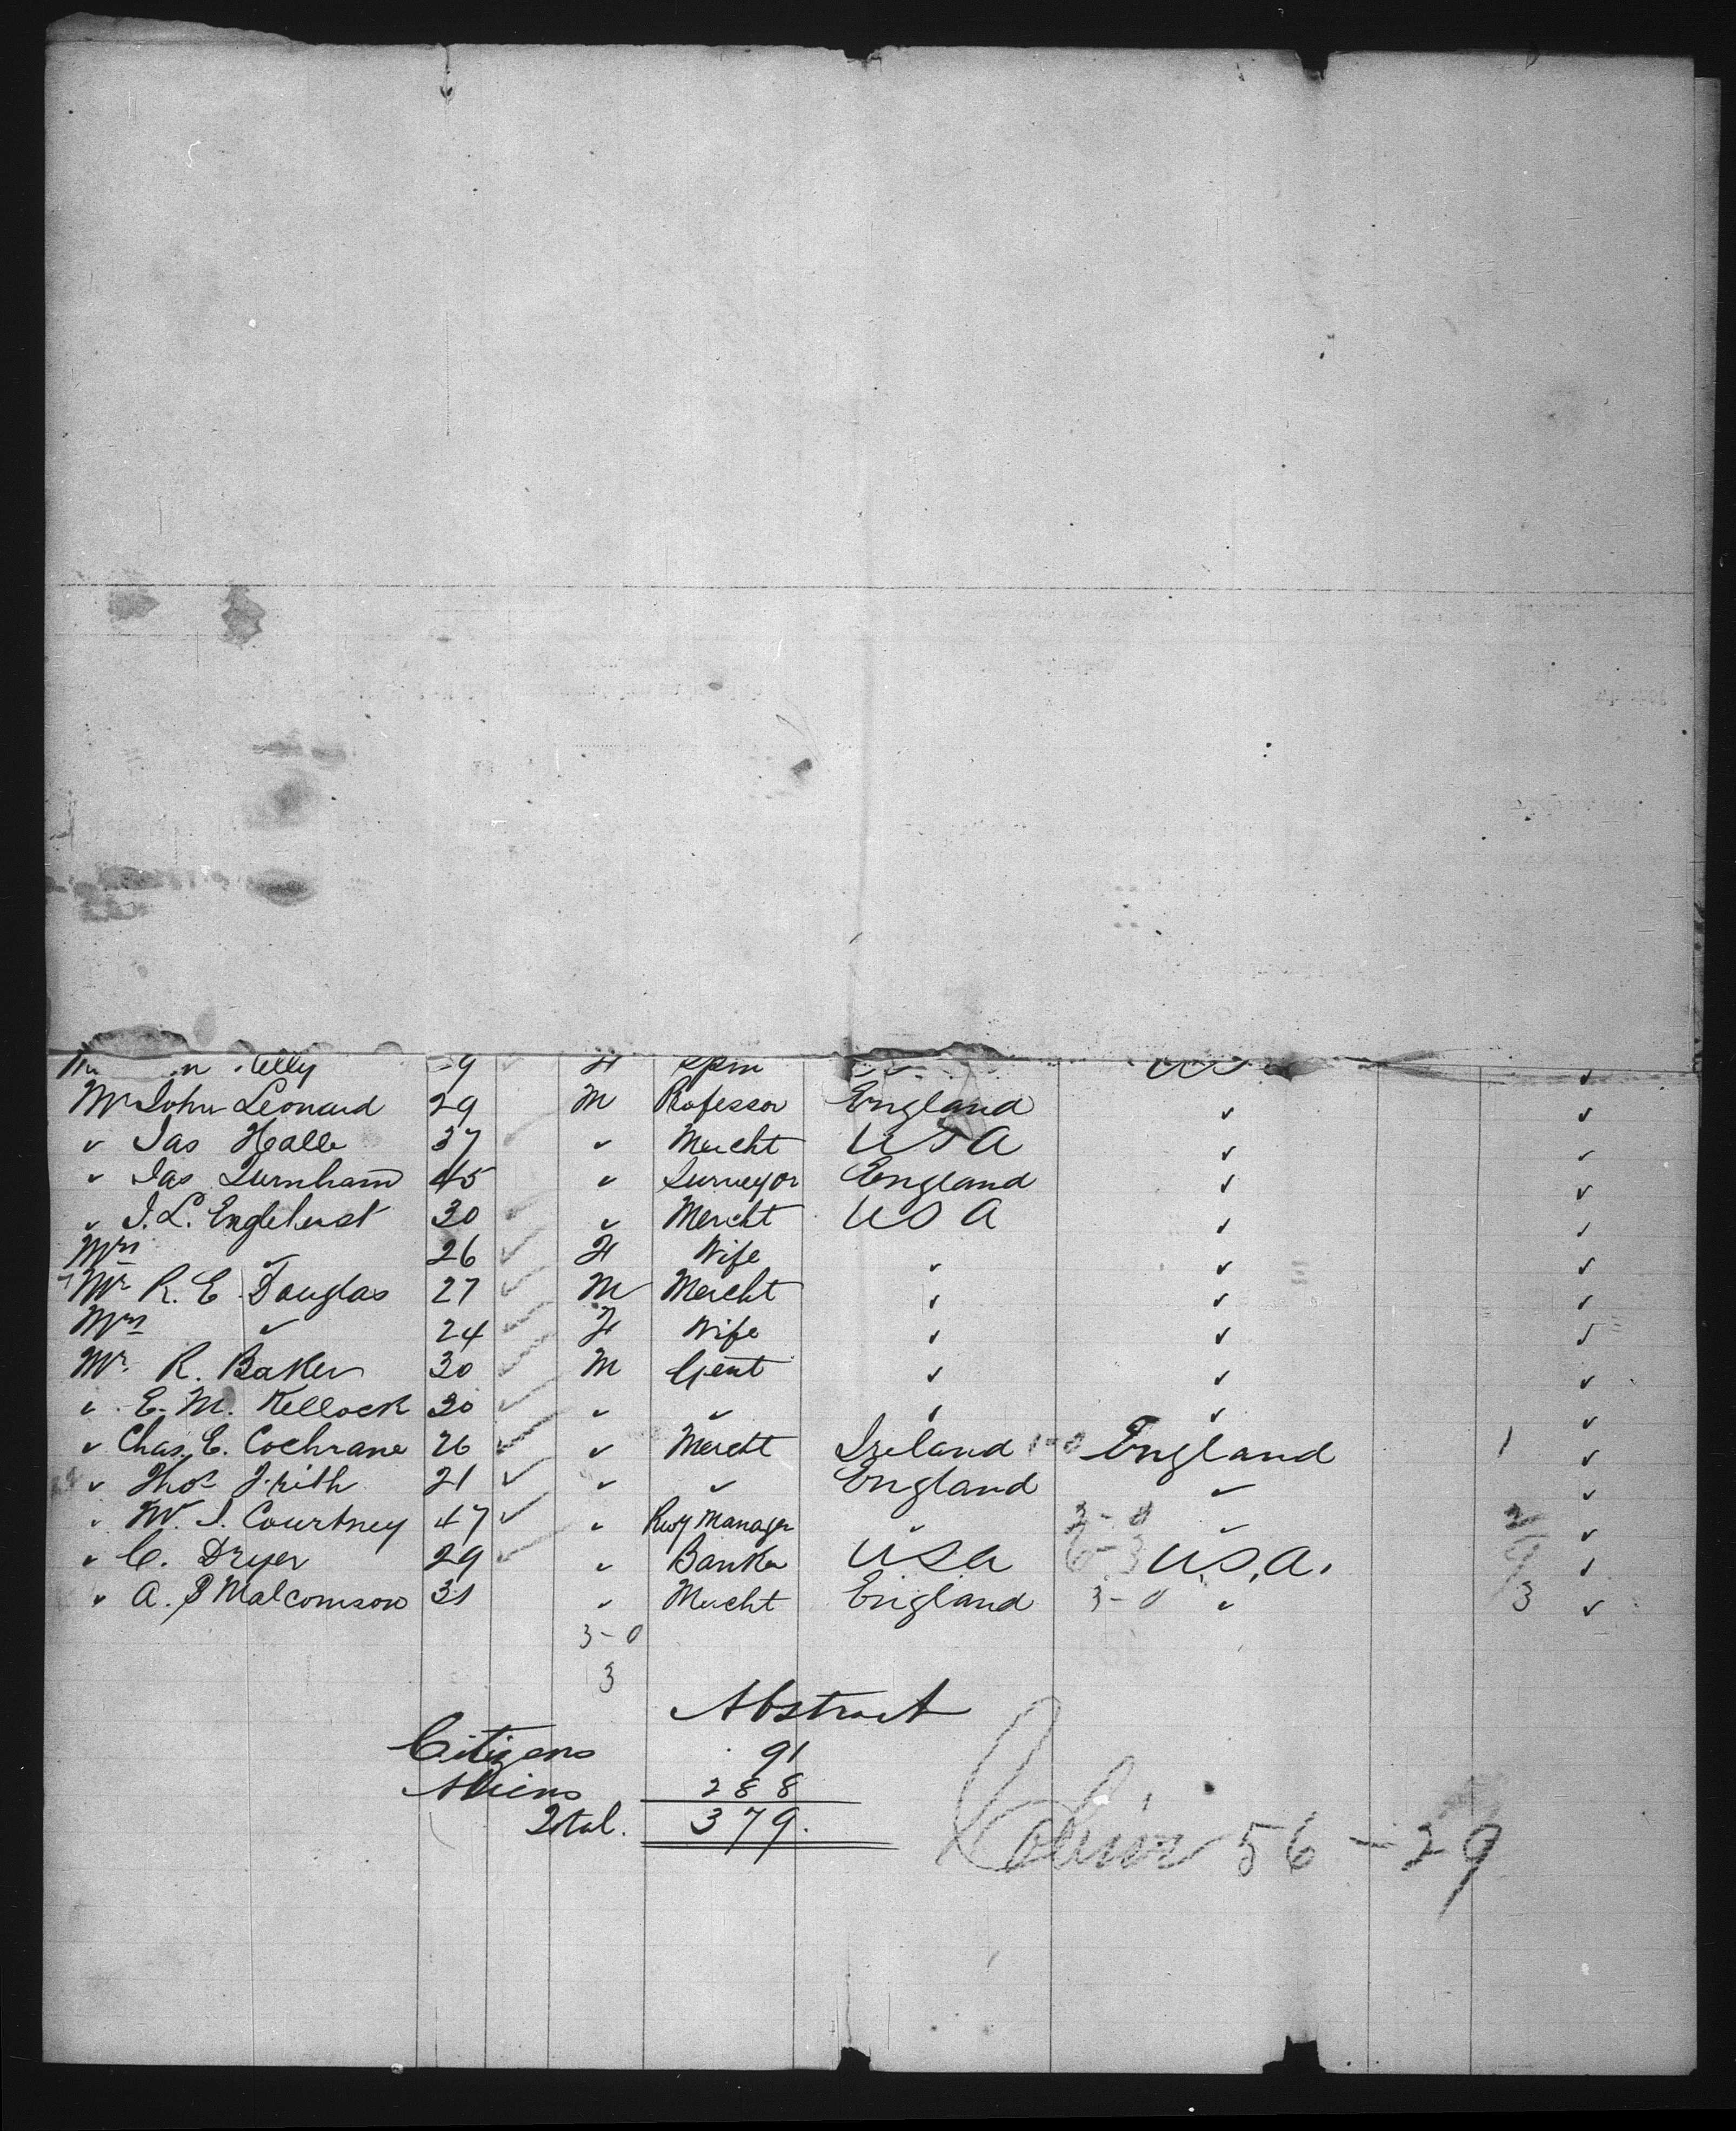 elly 9 F Spin
Mr John Leonard 29 M Professor England ✓ ✓
✓ Jas Halle 37 ✓ Mercht USA ✓ ✓
✓ Jas Turnham 45 ✓ Surveyor England ✓ ✓
✓ J. L. Englehart 30 ✓ Mercht USA ✓ ✓
Mrs ✓ 26 F Wife ✓ ✓ ✓
Mr R. E. Douglas 27 M Mercht ✓ ✓ ✓
Mrs ✓ 24 F Wife ✓ ✓ ✓
Mr. R. Baker 30 M Gent ✓ ✓ ✓
✓ E. M. Kellock 30 ✓ ✓ ✓ ✓ ✓
✓ Chas. E. Cochrane 26 ✓ Mercht Ireland 1-0 England 1 ✓
✓ Thos Frith 21 ✓ ✓ England ✓ ✓
✓ W. J. Courtney 47 ✓ Rwy Manager ✓ 2-0 ✓ 2 ✓
✓ C. Dryer 29 ✓ Banker USA 6-3 U.S.A. 9 ✓
✓ A. P Malcomson 31 ✓ Mercht England 3-0 ✓ 3 ✓
3-0
3
Abstract
Citizens 91
Aliens 288
Total. 379.
56-29